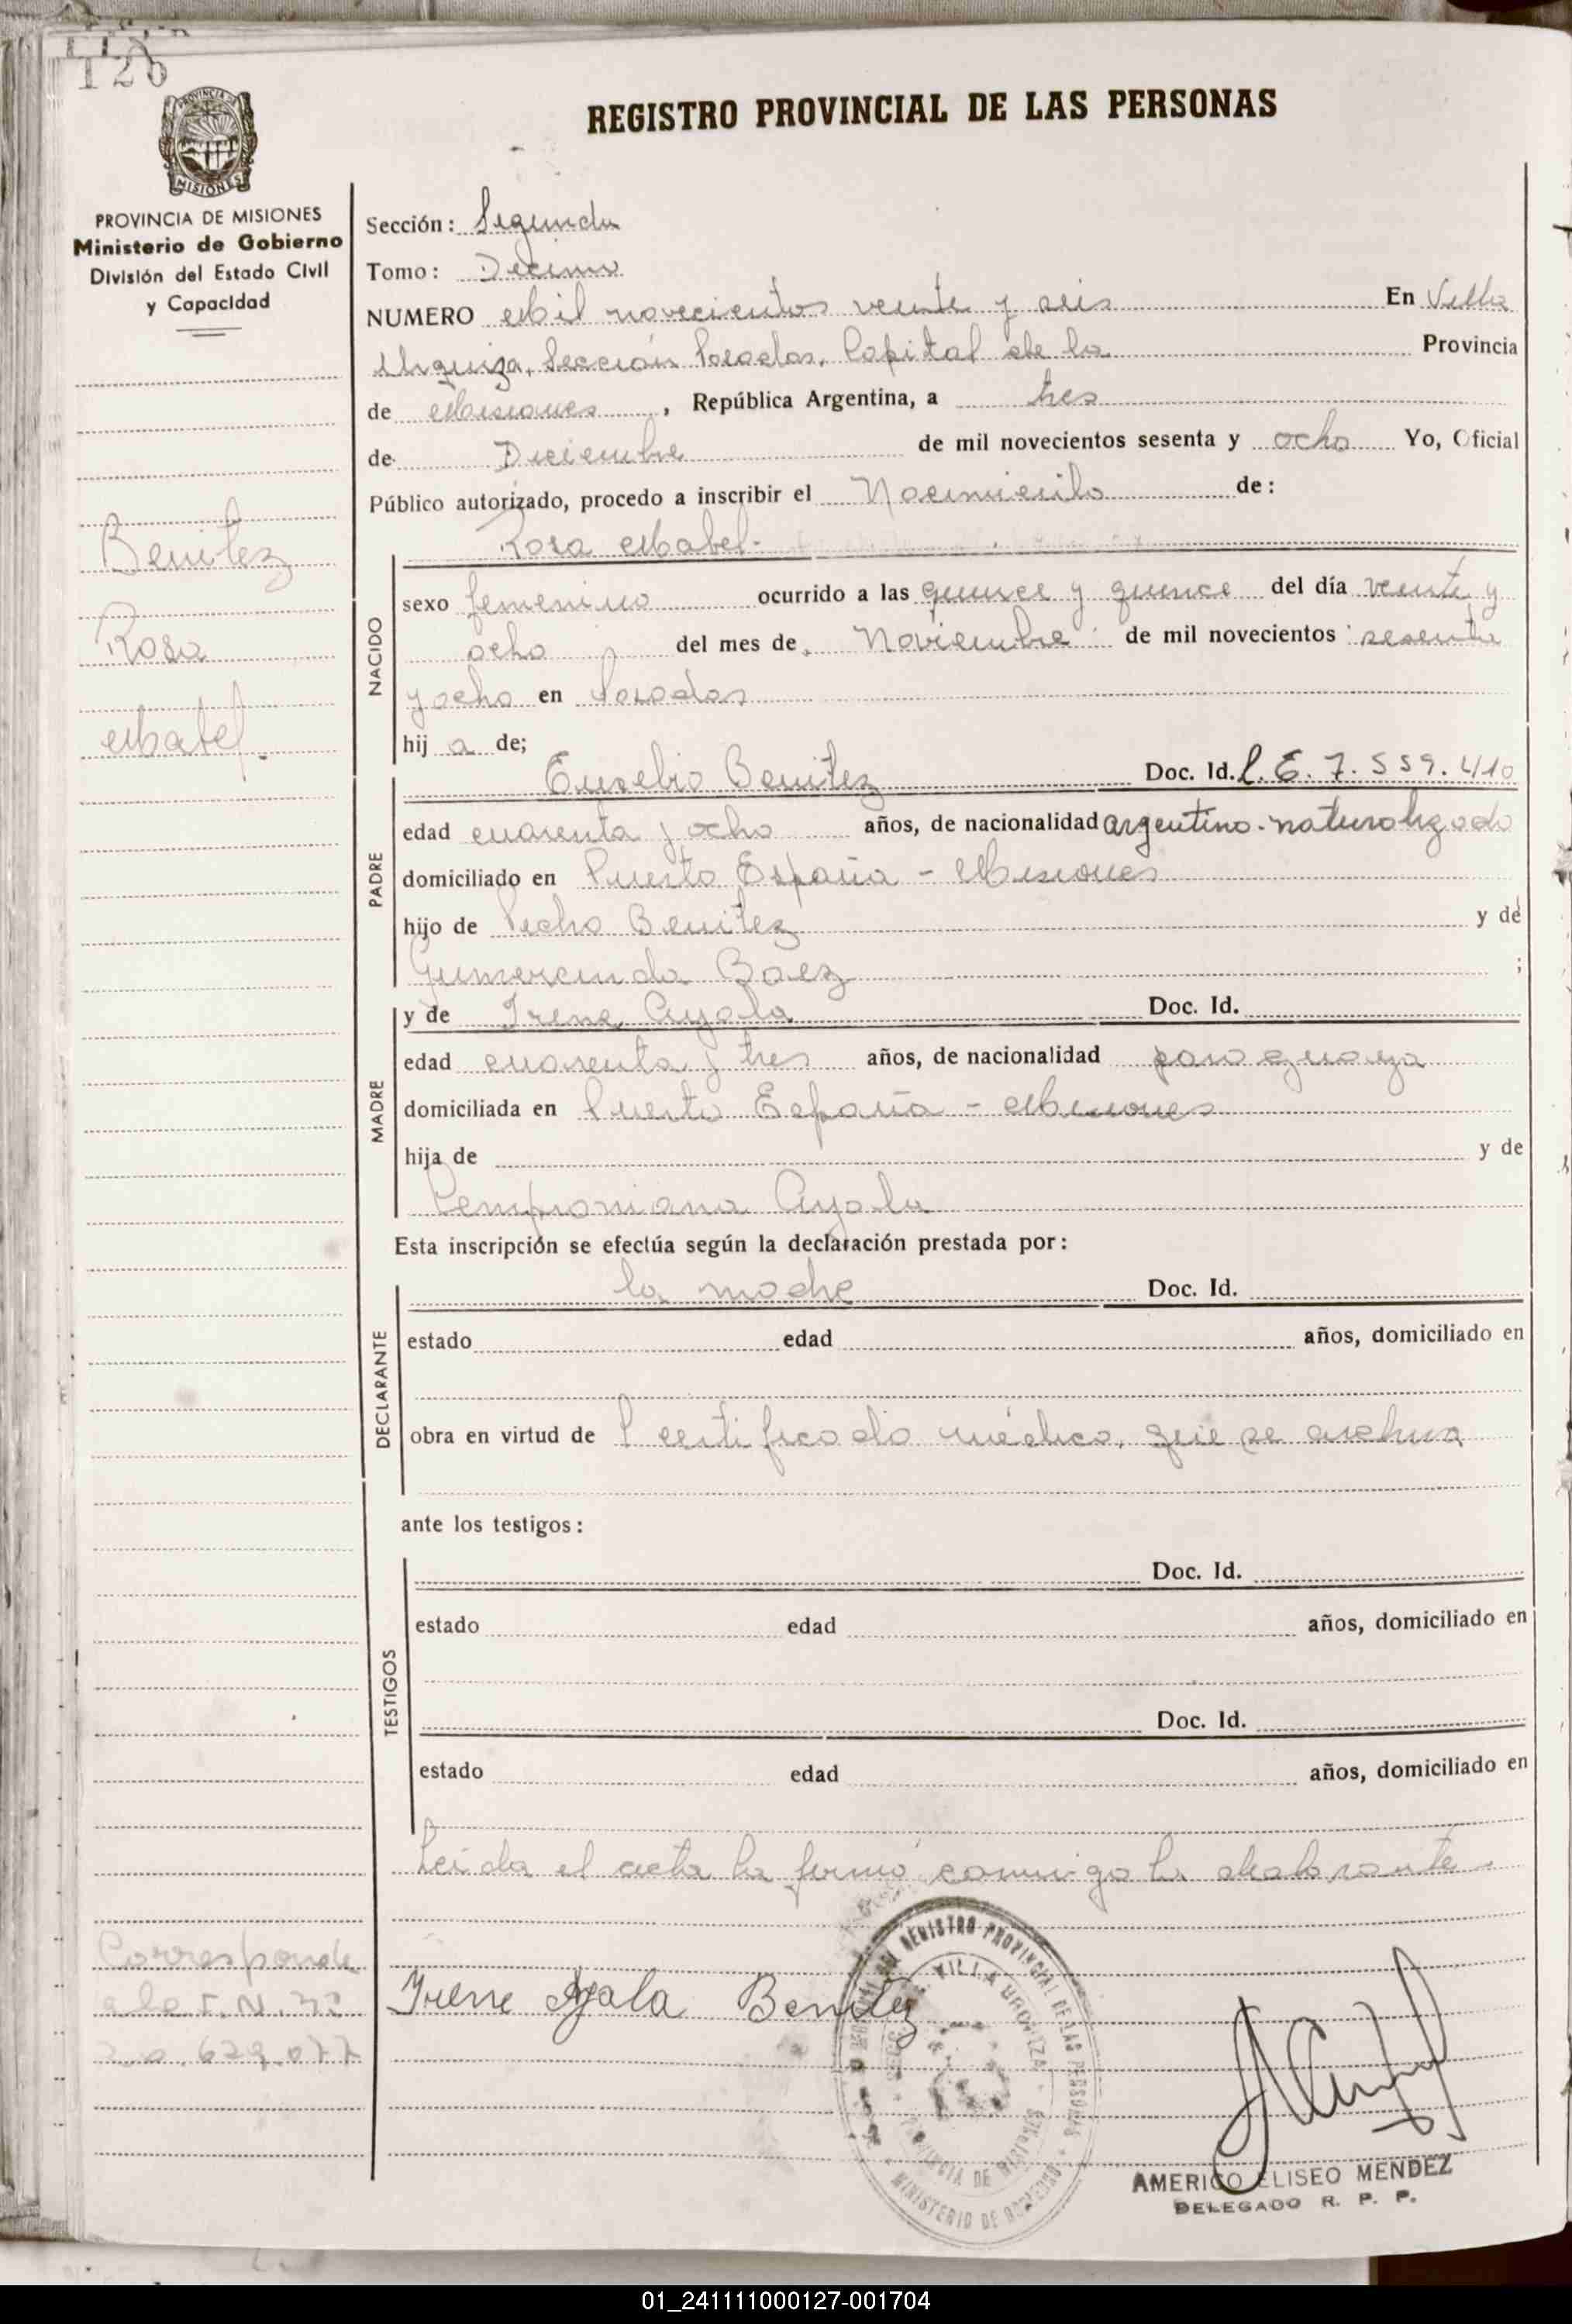 126
REGISTRO PROVINCIAL DE LAS PERSONAS
PROVINCIA DE MISIONES
Ministerio de Gobierno
División del Estado Civil
y Capacidad
Benitez
Rosa
Mabel.
Sección: Segunda
Tomo: Decimo
NUMERO Mil novecientos veinte y seis En Villa
Urquiza, Sección Posadas, Capital de la Provincia
de Misiones, República Argentina, a tres
de Diciembre de mil novecientos sesenta y ocho Yo, Oficial
Público autorizado, procedo a inscribir el Nacimiento de:
Rosa Mabel.-
NACIDO
sexo femenino ocurrido a las quince y quince del día veinte y
ocho del mes de Noviembre de mil novecientos sesenta
y ocho en Posadas
hij a de;
PADRE
Eusebio Benitez Doc. Id. L. E. 7.559.410
edad cuarenta y ocho años, de nacionalidad argentino-naturalizado
domiciliado en Puerto España - Misiones
hijo de Pedro Benitez y de
Gumercinda Baez ;
MADRE
y de Irene Ayala Doc. Id.
edad cuarenta y tres años, de nacionalidad paraguaya
domiciliada en Puerto España - Misiones
hija de y de
Ayala
Esta inscripción se efectúa según la declaración prestada por:
DECLARANTE
la madre Doc. Id.
estado edad años, domiciliado en
obra en virtud de certificado médico, que se archiva
ante los testigos:
TESTIGOS
Doc. Id.
estado edad años, domiciliado en
Doc. Id.
estado edad años, domiciliado en
Leida el acta la firmó conmigo la declarante
Corresponde
a la I.N. 
629.077
Irene Ayala Benitez
REGISTRO PROVINCIAL DE LAS PERSONAS
VILLA URQUIZA
PROVINCIA DE MISIONES
MINISTERIO DE GOBIERNO
AMERICO ELISEO MENDEZ
DELEGADO R. P. P.
01_241111000127-001704